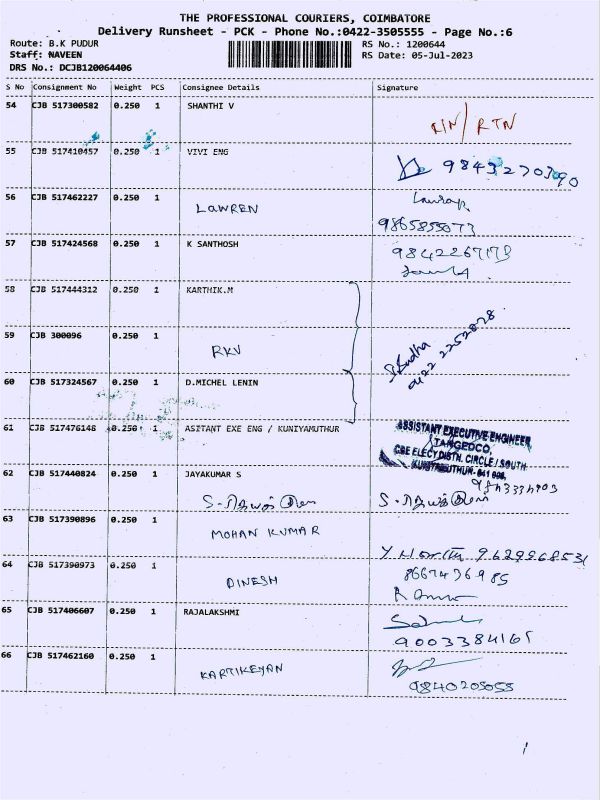 THE PROFESSIONAL COURIERS, COIMBATORE
Delivery Runsheet - PCK - Phone No.:0422-3505555 - Page No.:6
Route: B.K PUDUR RS No.: 1200644
Staff: NAVEEN RS Date: 05-Jul-2023
DRS No.: DCJB120064406
S No Consignment No Weight PCS Consignee Details Signature
54 CJB 517300582 0.250 1 SHANTHI V
RIN/RTN
55 CJB 517410457 0.250 1 VIVI ENG
9843270390
56 CJB 517462227 0.250 1 LAWREN
9865855073
57 CJB 517424568 0.250 1 K SANTHOSH
9842267173
58 CJB 517444312 0.250 1 KARTHIK.M
59 CJB 300096 0.250 1 RKV
Sudha
0422 2252828
60 CJB 517324567 0.250 1 D.MICHEL LENIN
61 CJB 517476148 0.250 1 ASITANT EXE ENG / KUNIYAMUTHUR
ASSISTANT EXECUTIVE ENGINEER
TANGEDCO,
CBE ELECY DISTN. CIRCLE / SOUTH
KUNIYAMUTHUR - 641 008.
62 CJB 517440824 0.250 1 JAYAKUMAR S
63 CJB 517390896 0.250 1 MOHAN KUMAR
9629968531
64 CJB 517390973 0.250 1 DINESH
8667436985
65 CJB 517406607 0.250 1 RAJALAKSHMI
9003384165
66 CJB 517462160 0.250 1 KARTIKEYAN
9840205055